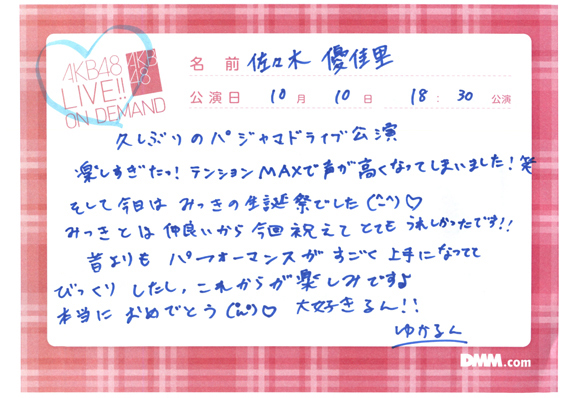 AKB48
LIVE!!
ON DEMAND
AKB
48
名 前 佐々木 優佳里
公演日 10月 10日 18:30 公演
久しぶりのパジャマドライブ公演
楽しすぎたっ! テンションMAXで声が高くなってしまいました!笑
そして今日は みっきの生誕祭でした (^^)♡
みっきとは仲良いから今回祝えて とても うれしかったです!!
昔よりも パフォーマンスが すごく 上手になってて
びっくり したし、これからが楽しみですよ
本当に おめでとう (^^)♡ 大好きるん!!
ゆかるん
DMM.com